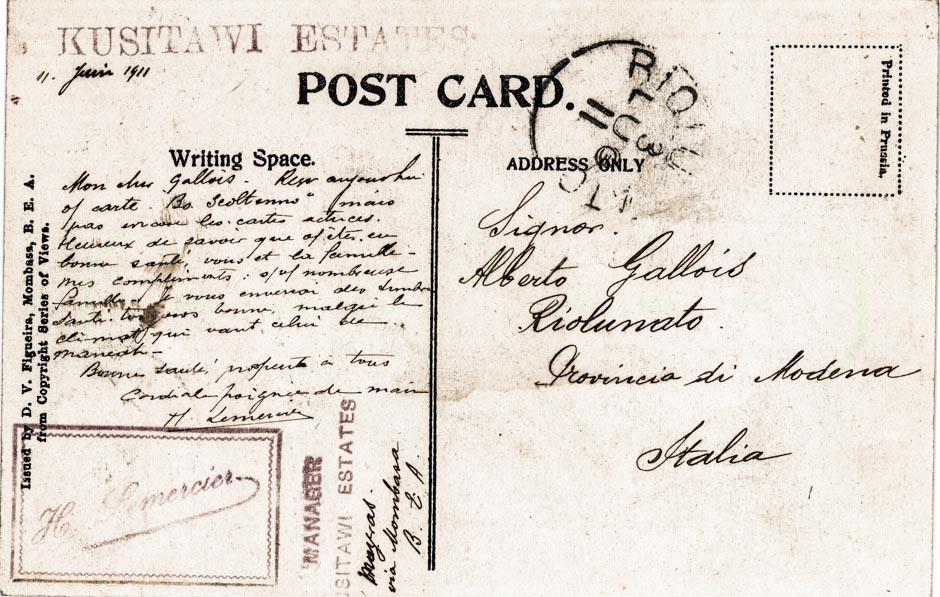 KUSITAWI ESTATES
11. Juin 1911
POST CARD.
Writing Space.
ADDRESS ONLY
Printed in Prussia.
Mon cher Gallois. Reçu aujourd'hui
carte. mais
pas encore les cartes
Heureux de savoir que êtes en
bonne santé vous et la famille -
mes compliments: s/ nombreuse
famille, je vous enverrai des timbres
Santé toujours bonne, malgré le
climat qui vaut celui de
Bonne santé, prosperité à tous
Cordiale poignée de main
H. Lemercier
Signor.
Alberto Gallois
Riolunato.
Provincia di Modena
Italia
Issued by D. V. Figueira, Mombasa, B. E. A.
from Copyright Series of Views.
H. Lemercier.
MANAGER
USITAWI ESTATES
via Mombasa
B. E. A
RIOLU